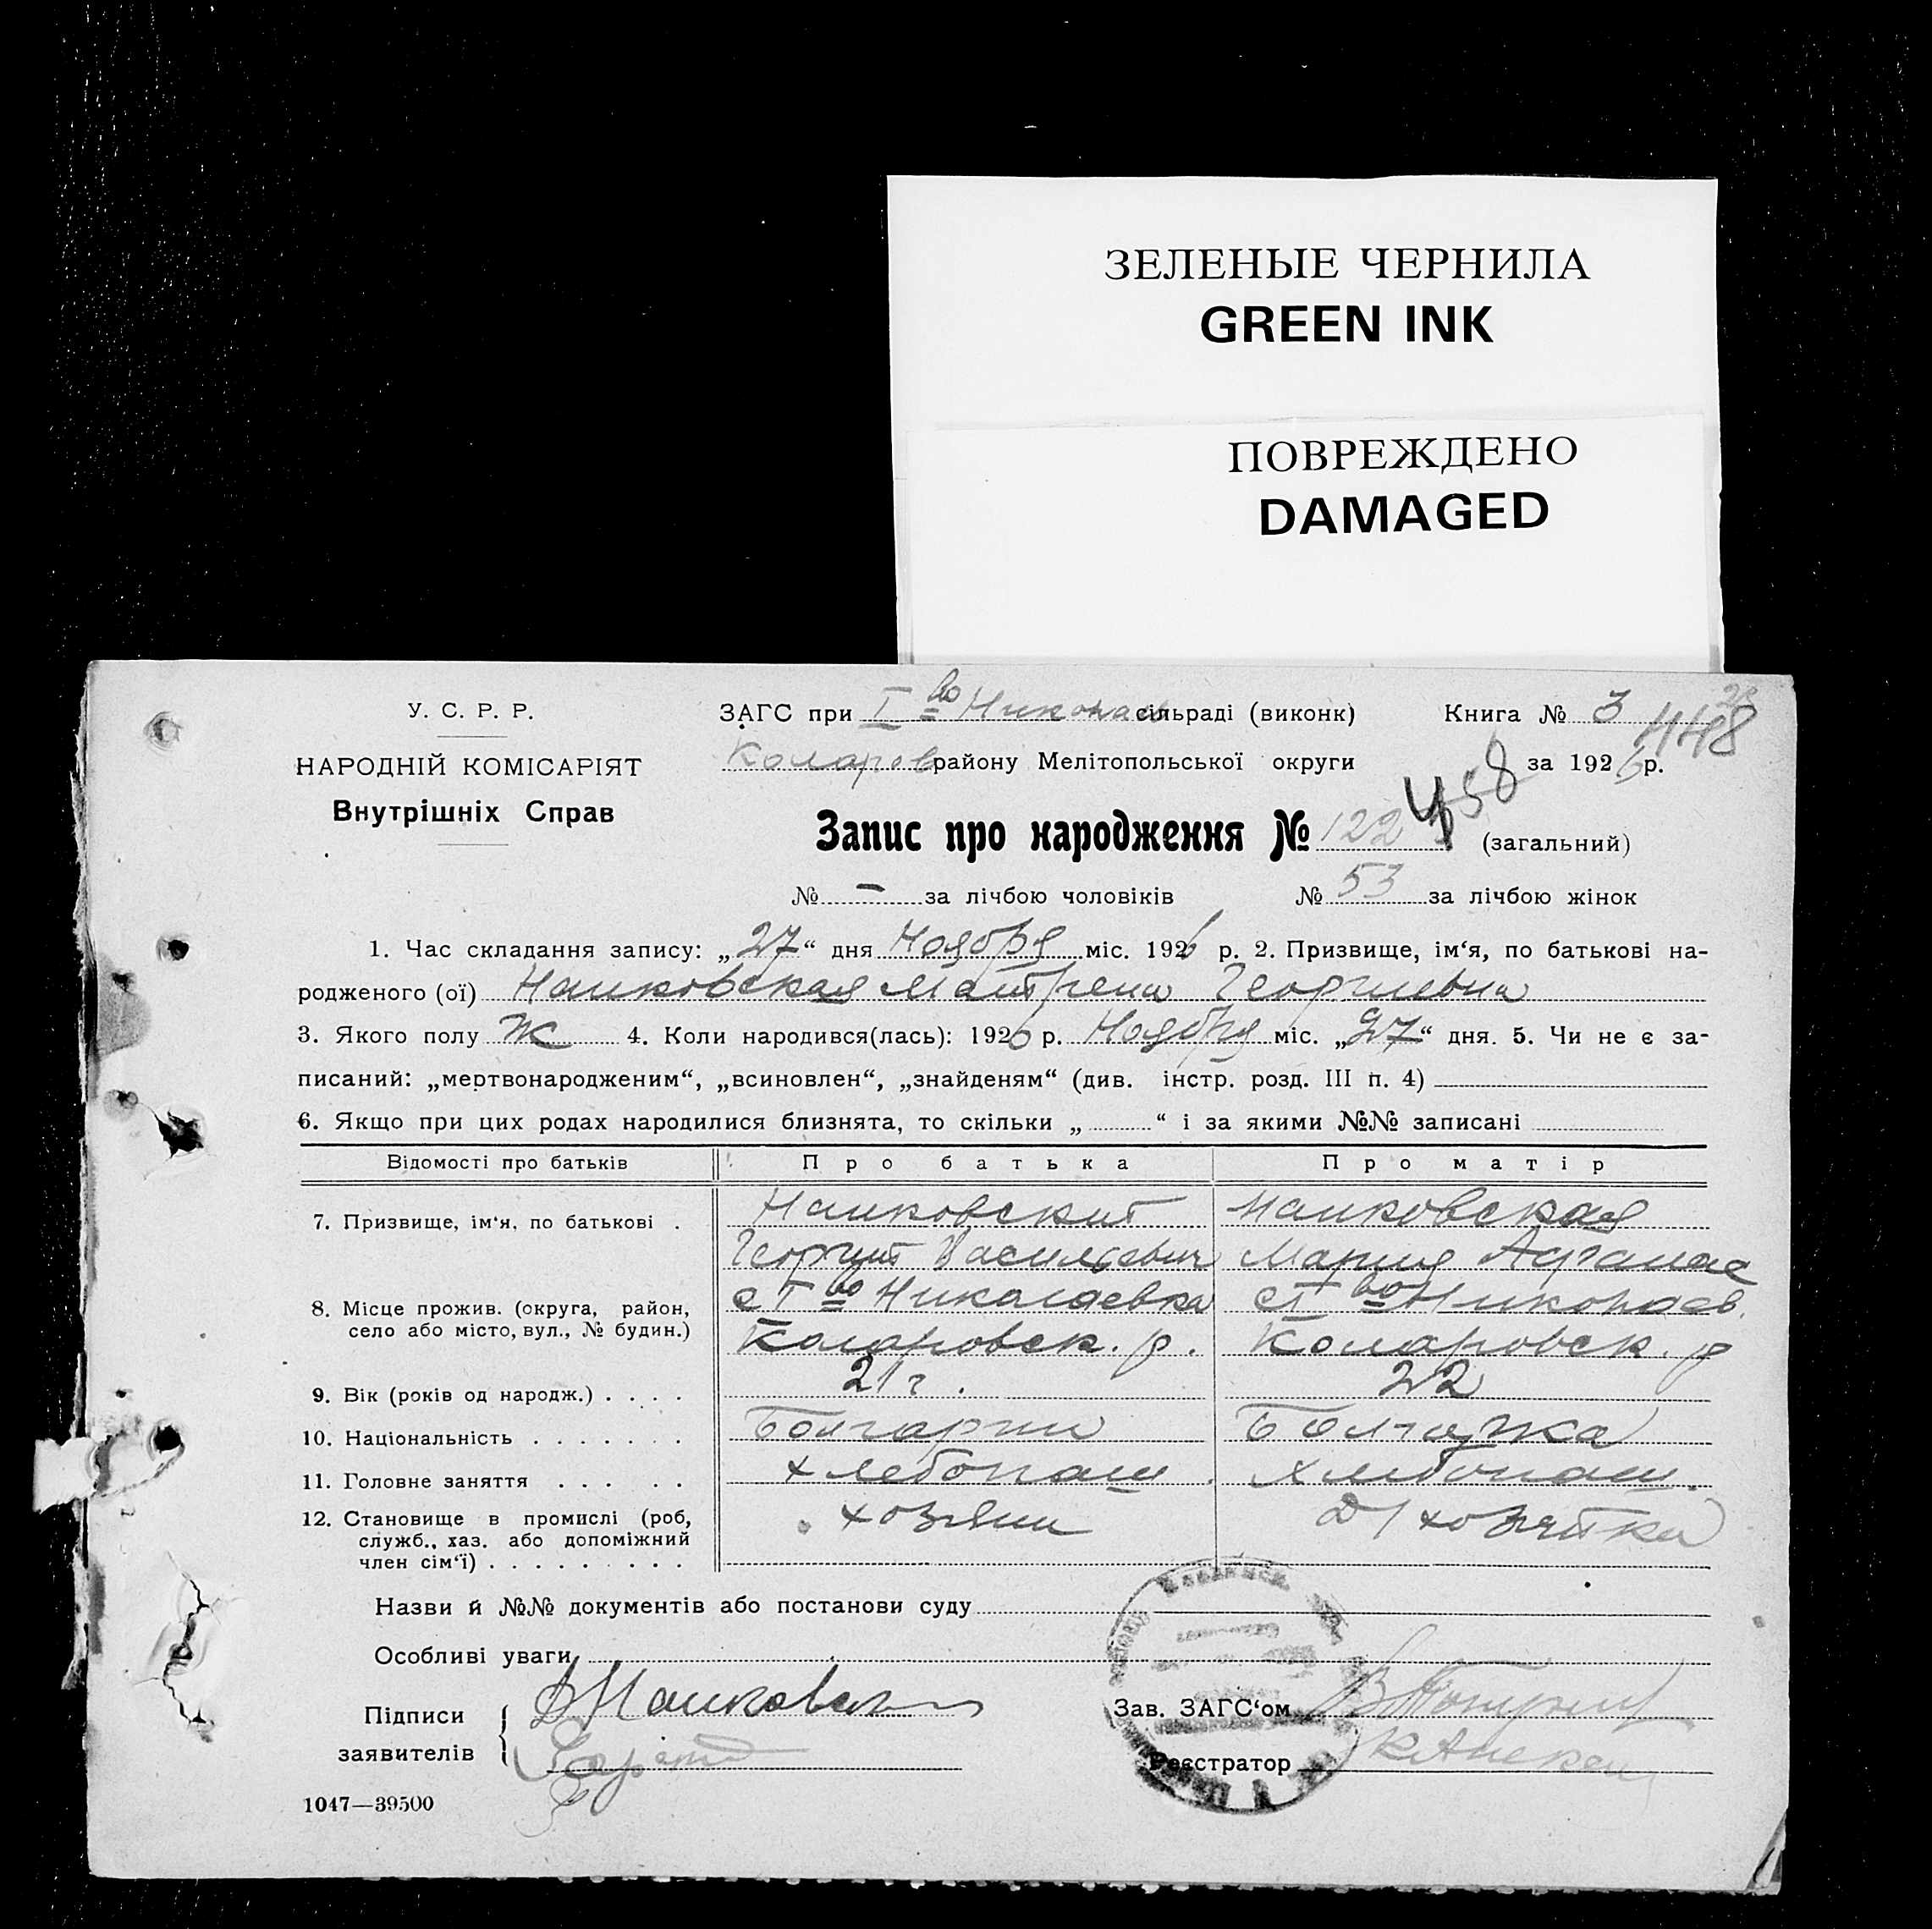 ЗЕЛЕНЫЕ ЧЕРНИЛА
GREEN INK
ПОВРЕЖДЕНО
DAMAGED
У. С. Р. Р.
НАРОДНІЙ КОМІСАРІЯТ
Внутрішніх Справ
ЗАГС при I во Николаев сільраді (виконк) Книга № 3
448
Коларов району Мелітопольської округи за 1926 р.
458
Запис про народження № 122 (загальний)
№ – за лічбою чоловіків № 53 за лічбою жінок
1. Час складання запису: „27“ дня Ноября міс. 1926 р. 2. Призвище, ім‘я, по батькові на-
родженого (ої) Наиковская Матрена Георгиевна
3. Якого полу Ж 4. Коли народився(лась): 1926 р. Ноября міс. „27“ дня. 5. Чи не є за-
писаний: „мертвонародженим“, „всиновлен“, „знайденям“ (див. інстр. розд. III п. 4)
6. Якщо при цих родах народилися близнята, то скільки „ “ і за якими №№ записані
Відомості про батьків Про батька Про матір
7. Призвище, ім‘я, по батькові . Наиковский Наиковская
Георгий Васильевич Мария Афанас
8. Місце прожив. (округа, район, село або місто, вул., № будин.) с I во Николаевка с I во Николаев.
Коларовск. р. Коларовск. р
9. Вік (років од народж.) . . . . 21 г. 22
10. Національність . . . . . . . Болгарин Болгарка
11. Головне заняття . . . . . Хлебопаш. Хлебопаш.
12. Становище в промислі (роб, служб., хаз. або допоміжний член сім‘ї) . . . . . . . . . хозяин Д/хозяйка
Назви й №№ документів або постанови суду
Особливі уваги
Підписи заявителів
Зав. ЗАГС‘ом
Реєстратор
1047—39500